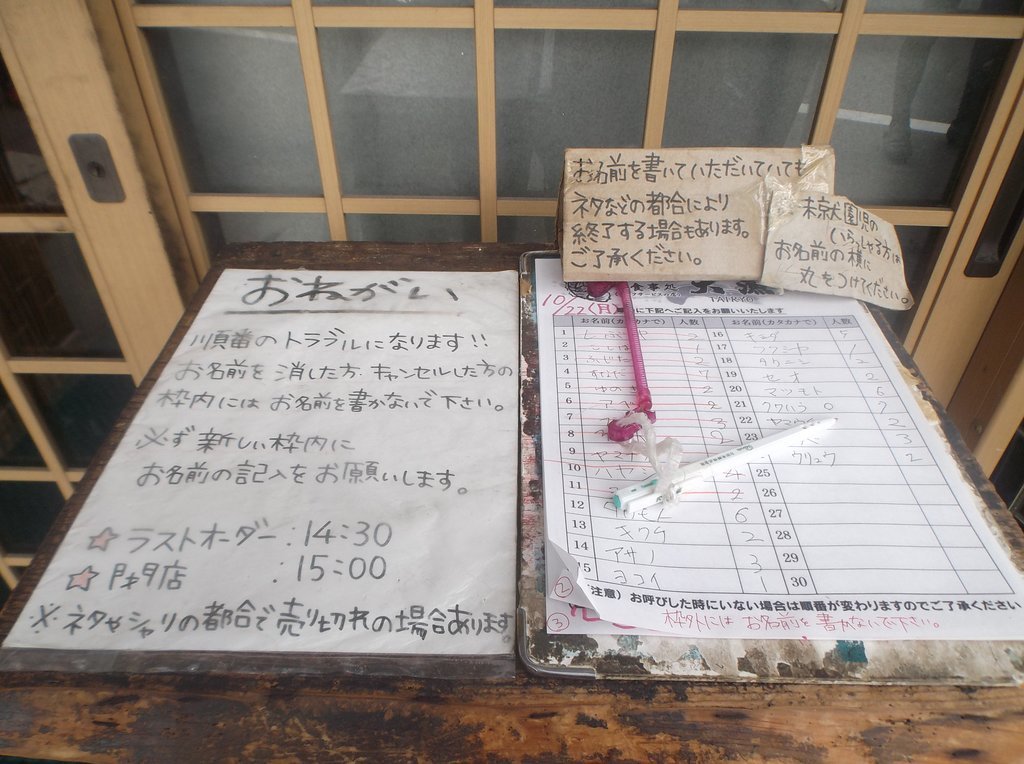 おねがい
順番のトラブルになります!!
お名前を消した方、キャンセルした方の
枠内にはお名前を書かないで下さい。
必ず新しい枠内に
お名前の記入をお願いします。
☆ラストオーダー:14:30
☆閉店:15:00
※ネタやシャリの都合で売り切れの場合あります
お名前を書いていただいていても
ネタなどの都合により
終了する場合もあります。
ご了承ください。
未就園児の
いらっしゃる方は
お名前の横に
丸をつけてください。
食事処
TAIRYO
10/22(月)
に下記へご記入をお願いいたします
お名前(カタカナで) 人数 お名前(カタカナで) 人数
1 2 16 5
2 17 1
3 2 18 2
4 7 19 セオ 2
5 2 20 マツモト 6
6 2 21
7 3 22 2
8 2 23 3
9 ウリュウ 2
10 ハヤシ 4 25
11 2 26
12 6 27
13 キクケ 2 28
14 アサノ 3 29
15 ヨコイ 1 30
② (注意)お呼びした時にいない場合は順番が変わりますのでご了承ください
③ 枠外にはお名前を書かないで下さい。